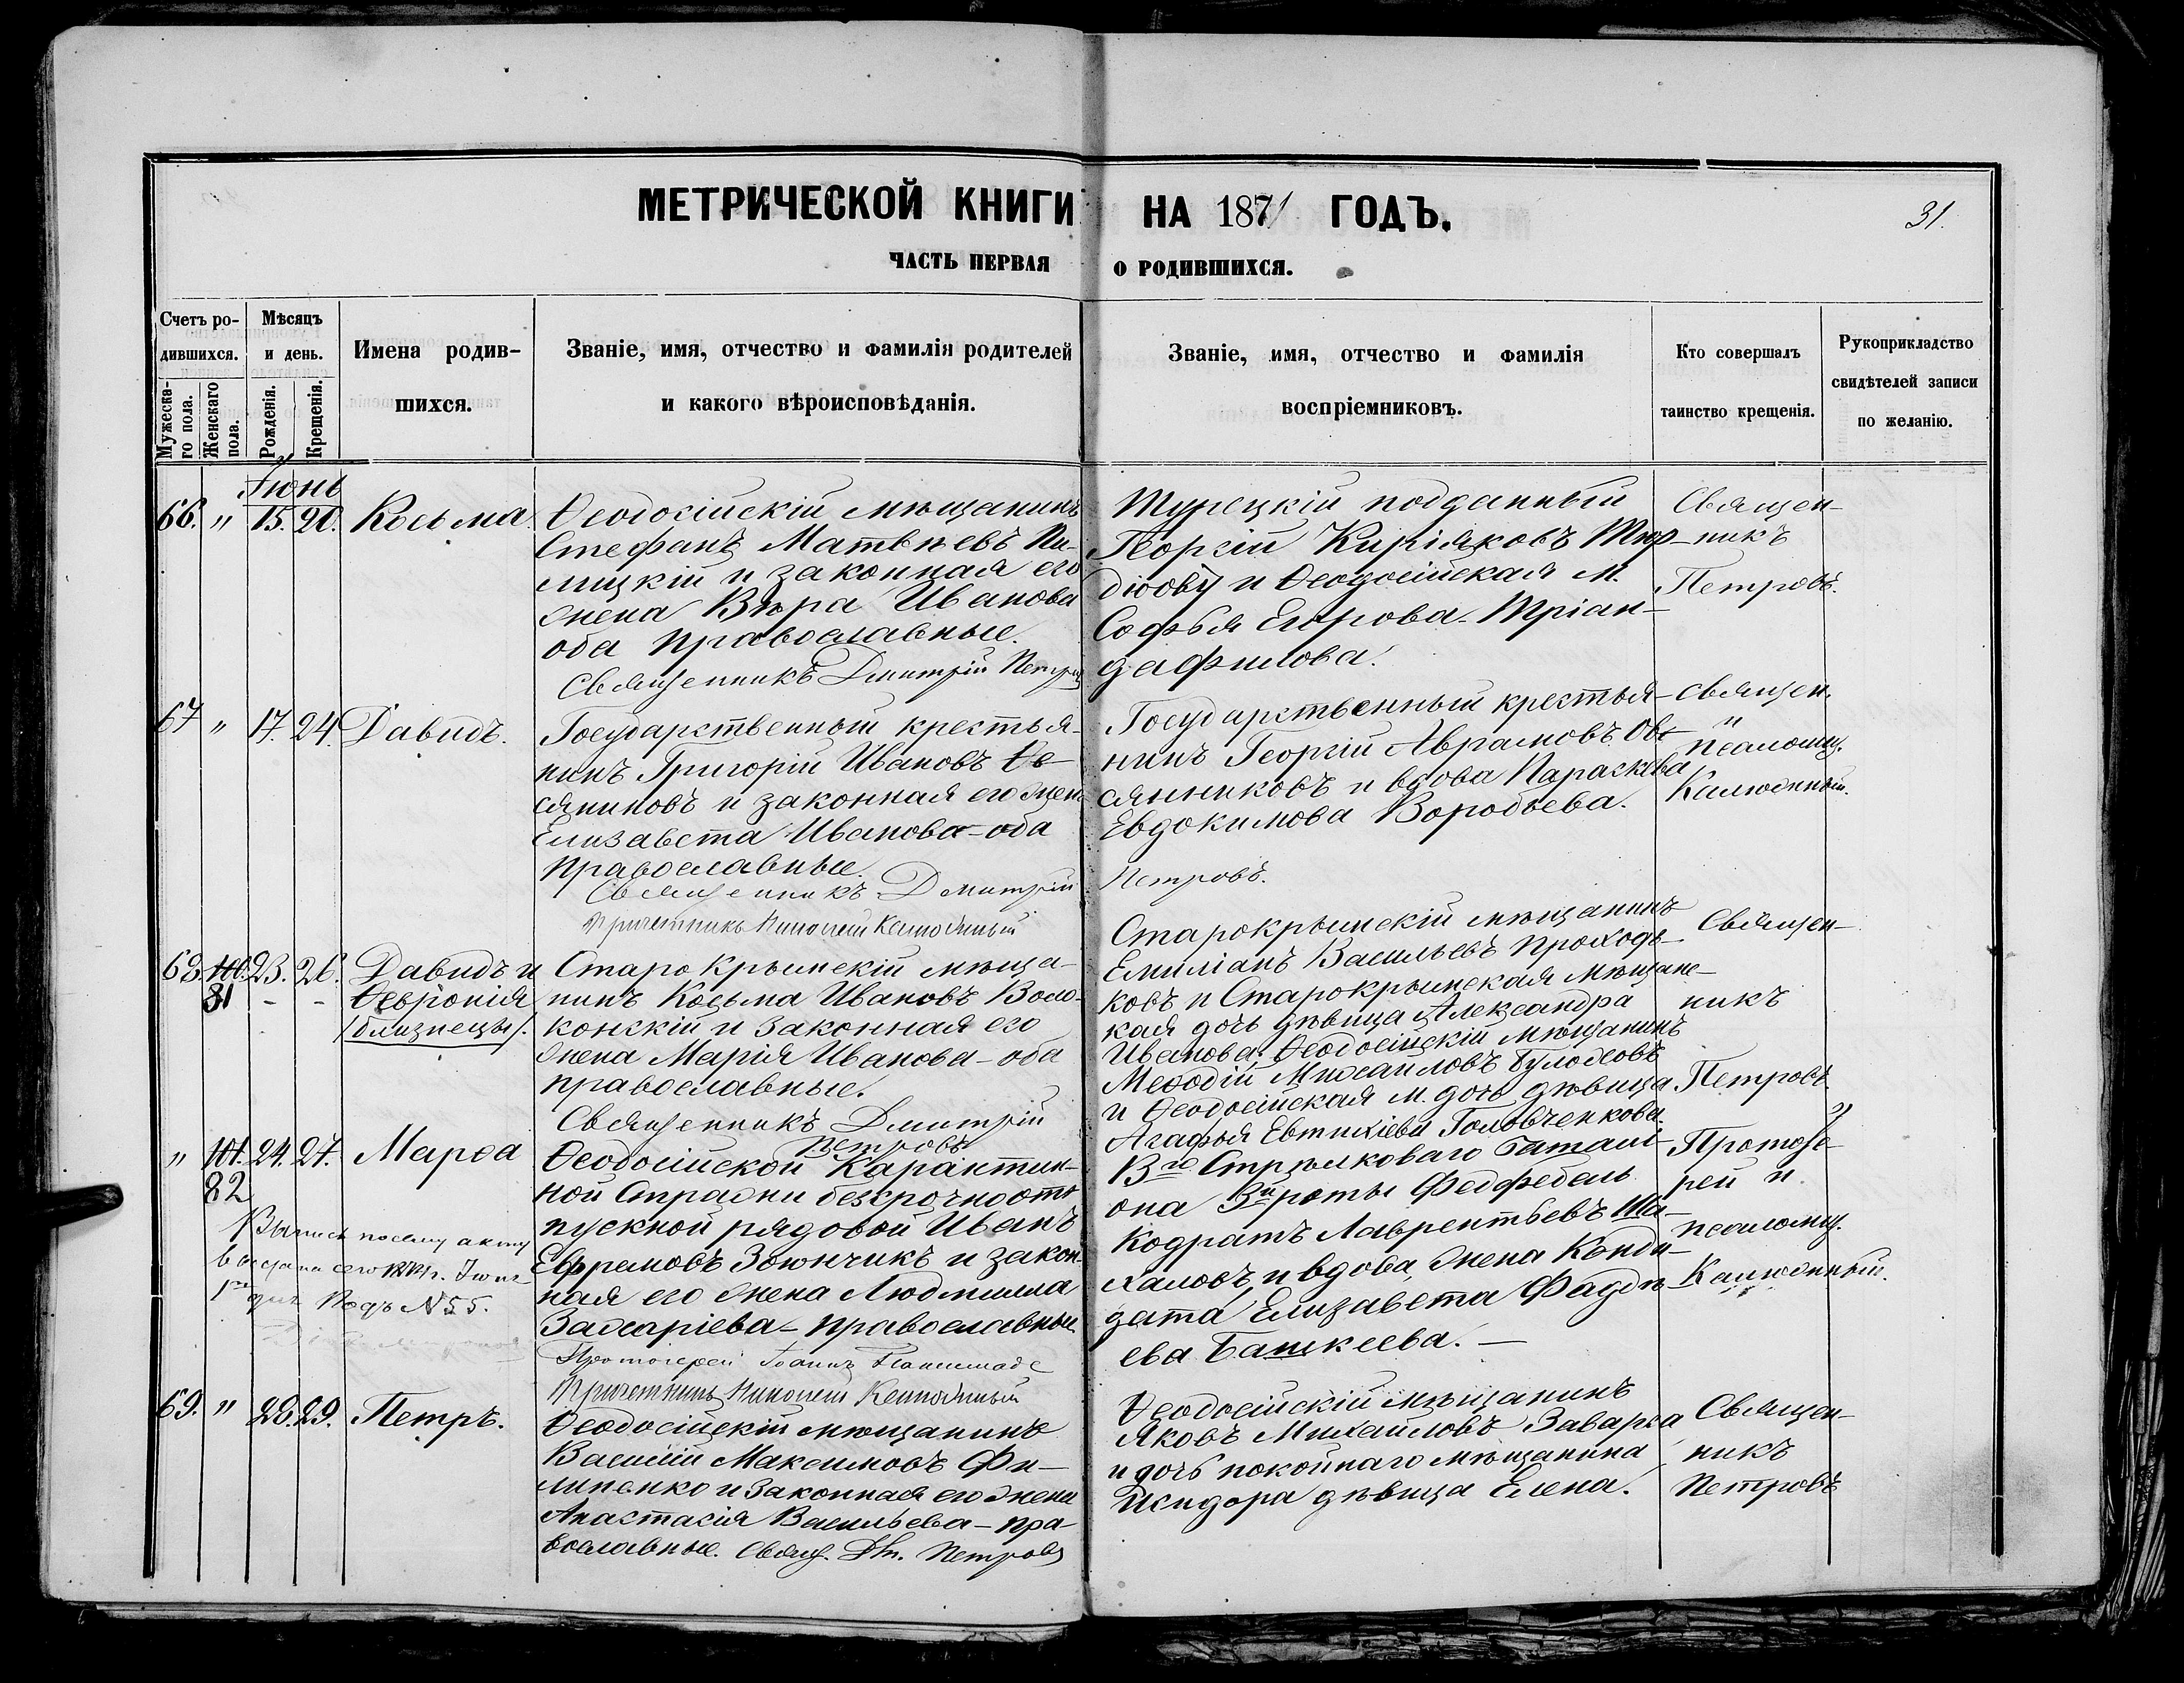 МЕТРИЧЕСКОЙ КНИГИ НА 1871 ГОДЪ.
31.
ЧАСТЬ ПЕРВАЯ О РОДИВШИХСЯ.
Счетъ ро-
дившихся.
Мужеска-
го пола.
Женскаго
пола.
Мѣсяцъ
и день.
Рожденія.
Крещенія.
Имена родив-
шихся.
Званіе, имя, отчество и фамилія родителей
и какого вѣроисповѣданія.
Званіе, имя, отчество и фамилія
воспріемниковъ.
Кто совершалъ
таинство крещенія.
Рукоприкладство
свидѣтелей записи
по желанію.
Іюнь
66. " 15. 20. Косьма
Ѳеодосійскій мѣщанинъ
Стефанъ Матвѣевъ
и законная его
жена Вѣра Иванова
оба православные.
Священникъ Дмитрій Петровъ
Турецкій подданный
Георгій Киріяковъ
и Ѳеодосійская м.
Софья Егорова Тріан-
дафилова.
Священ-
никъ
Петровъ.
67 " 17. 24. Давидъ.
Государственный крестья-
нинъ Григорій Ивановъ Ов-
сяниковъ и законная его жена
Елизавета Иванова - оба
православные.
Священникъ Дмитрій Петровъ.
Причетникъ Николай Калюжный
Государственный крестья-
нинъ Георгій Аврамовъ Ов-
сянниковъ и вдова Параскева
Евдокимова Воробьева.
Священ.
и
псаломщ.
Калюжный.
68. 100. 23. 26. Давидъ и
81 - - Ѳевронія
/близнецы/.
Старокрымскій мѣща-
нинъ Косьма Ивановъ Воло-
конскій и законная его
жена Марія Иванова - оба
православные.
Священникъ Дмитрій
Петровъ
Старокрымскій мѣщанинъ
Емиліанъ Васильевъ Проходь-
ковъ и Старокрымская мѣщанс-
кая дочь дѣвица Александра
Иванова; Ѳеодосійскій мѣщанинъ
Меѳодій Михайловъ
и Ѳеодосійская м. дочь дѣвица
Агафья Евтихіева Головченкова.
Священ-
никъ
Петровъ
" 101. 24. 27. Марѳа
82
Выпись по сему акту
выдана сего 1871 г. Іюня
дня подъ N 55.
Ѳеодосійской Карантин-
ной Стражи безсрочноот-
пускной рядовой Иванъ
Ефремовъ Зоюнчикъ и закон-
ная его жена Людмила
Захаріева - православные
Протоіерей Іоаннъ
Причетникъ Николай Калюжный
В го Стрѣлковаго Баталі-
она 3й роты Фелфебель
Кодратъ Лаврентьевъ Ша-
халовъ, и вдова, жена Канди-
дата Елизавета Фаддѣ-
ева Башкеева. -
Протоіе-
рей и
псаломщ.
Калюжный.
69. " 28. 29. Петръ.
Ѳеодосійскій мѣщанинъ
Василій Максимовъ Фи-
липенко и законная его жена
Анастасія Васильева - пра-
вославные. Свящ. Дм. Петровъ
Ѳеодосійскій мѣщанинъ
Яковъ Михайловъ Заварза
и дочь покойнаго мѣщанина
Исидора дѣвица Елена.
Священ-
никъ
Петровъ